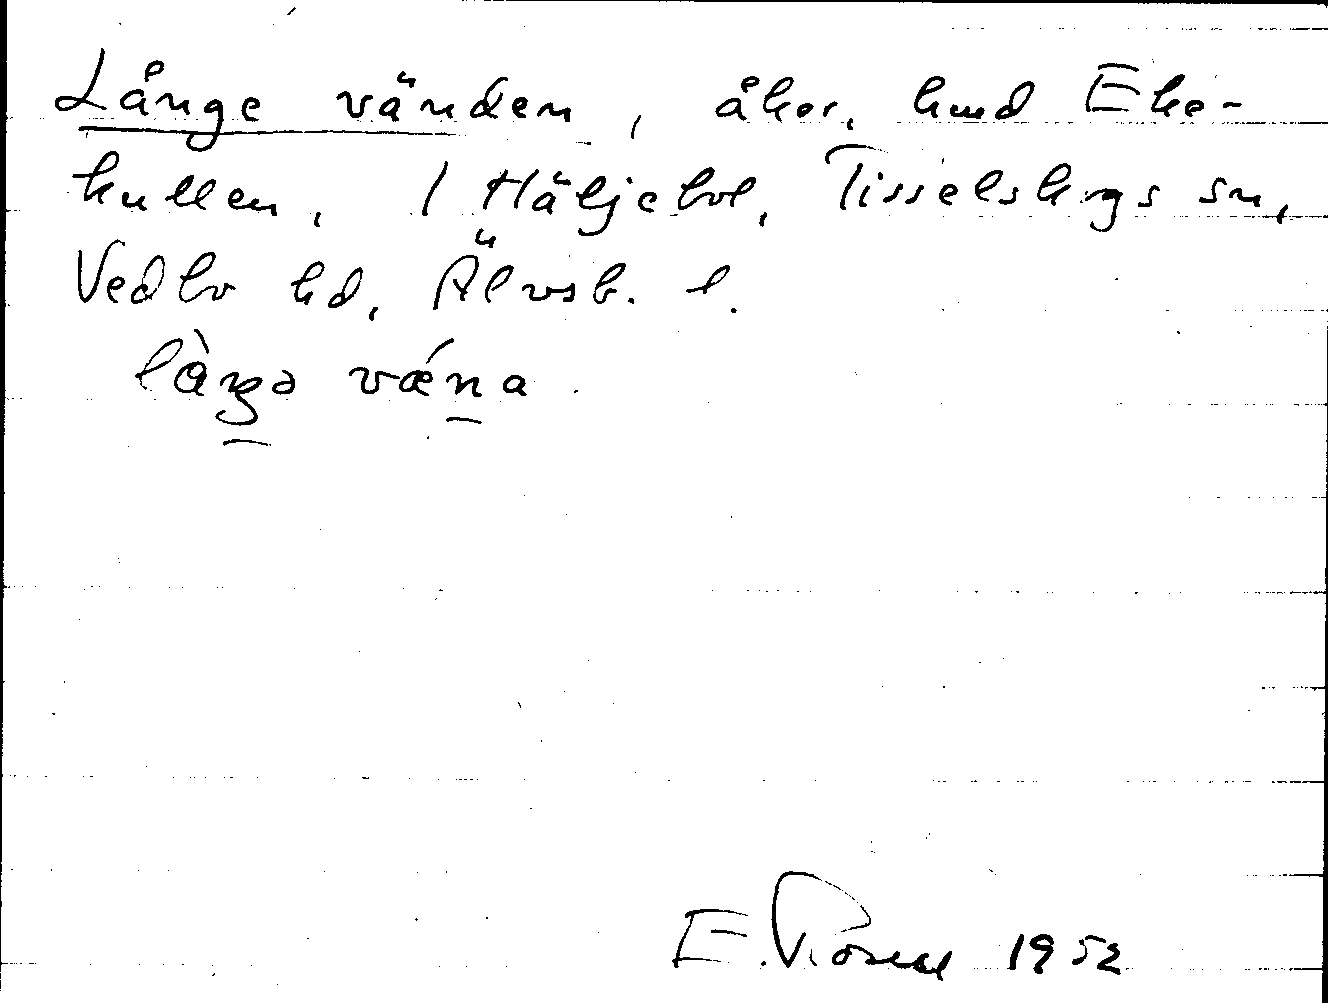 Långe vänden, åker, hmd Eke-
kullen, 1 Häljebol, Tisselskogs sn,
Vedbo hd, Älvsb. l.
làŋə vǽna
E. Rosell 1952